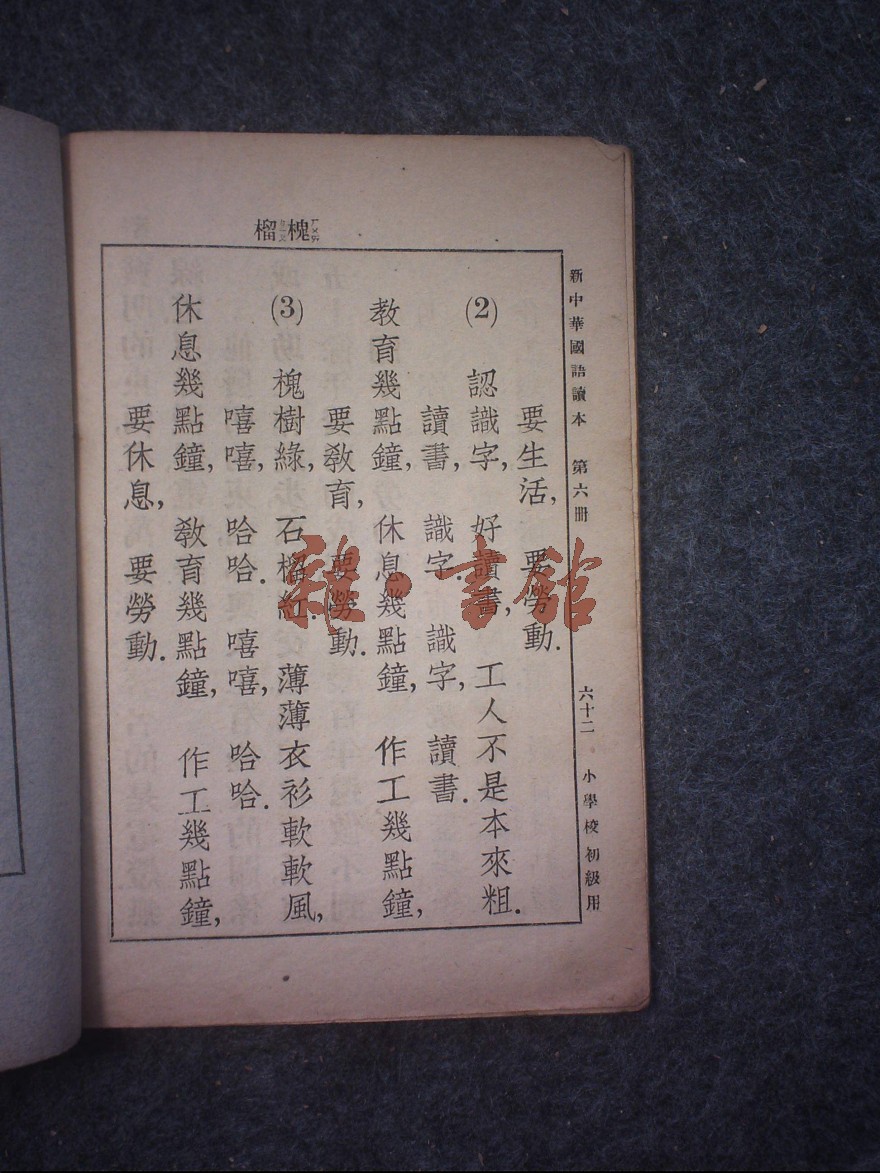 新中華國語讀本 第六冊 六十二 小學校初級用
槐榴
要生活, 要勞動.
(2) 認識字, 好讀書, 工人不是本來粗.
讀書, 識字. 識字, 讀書.
教育幾點鐘, 休息幾點鐘, 作工幾點鐘,
要敎育, 要勞動.
(3) 槐樹綠, 石榴紅. 薄薄衣衫軟軟風,
嘻嘻, 哈哈. 嘻嘻, 哈哈.
休息幾點鐘, 敎育幾點鐘, 作工幾點鐘,
要休息, 要勞動.
雜·書館